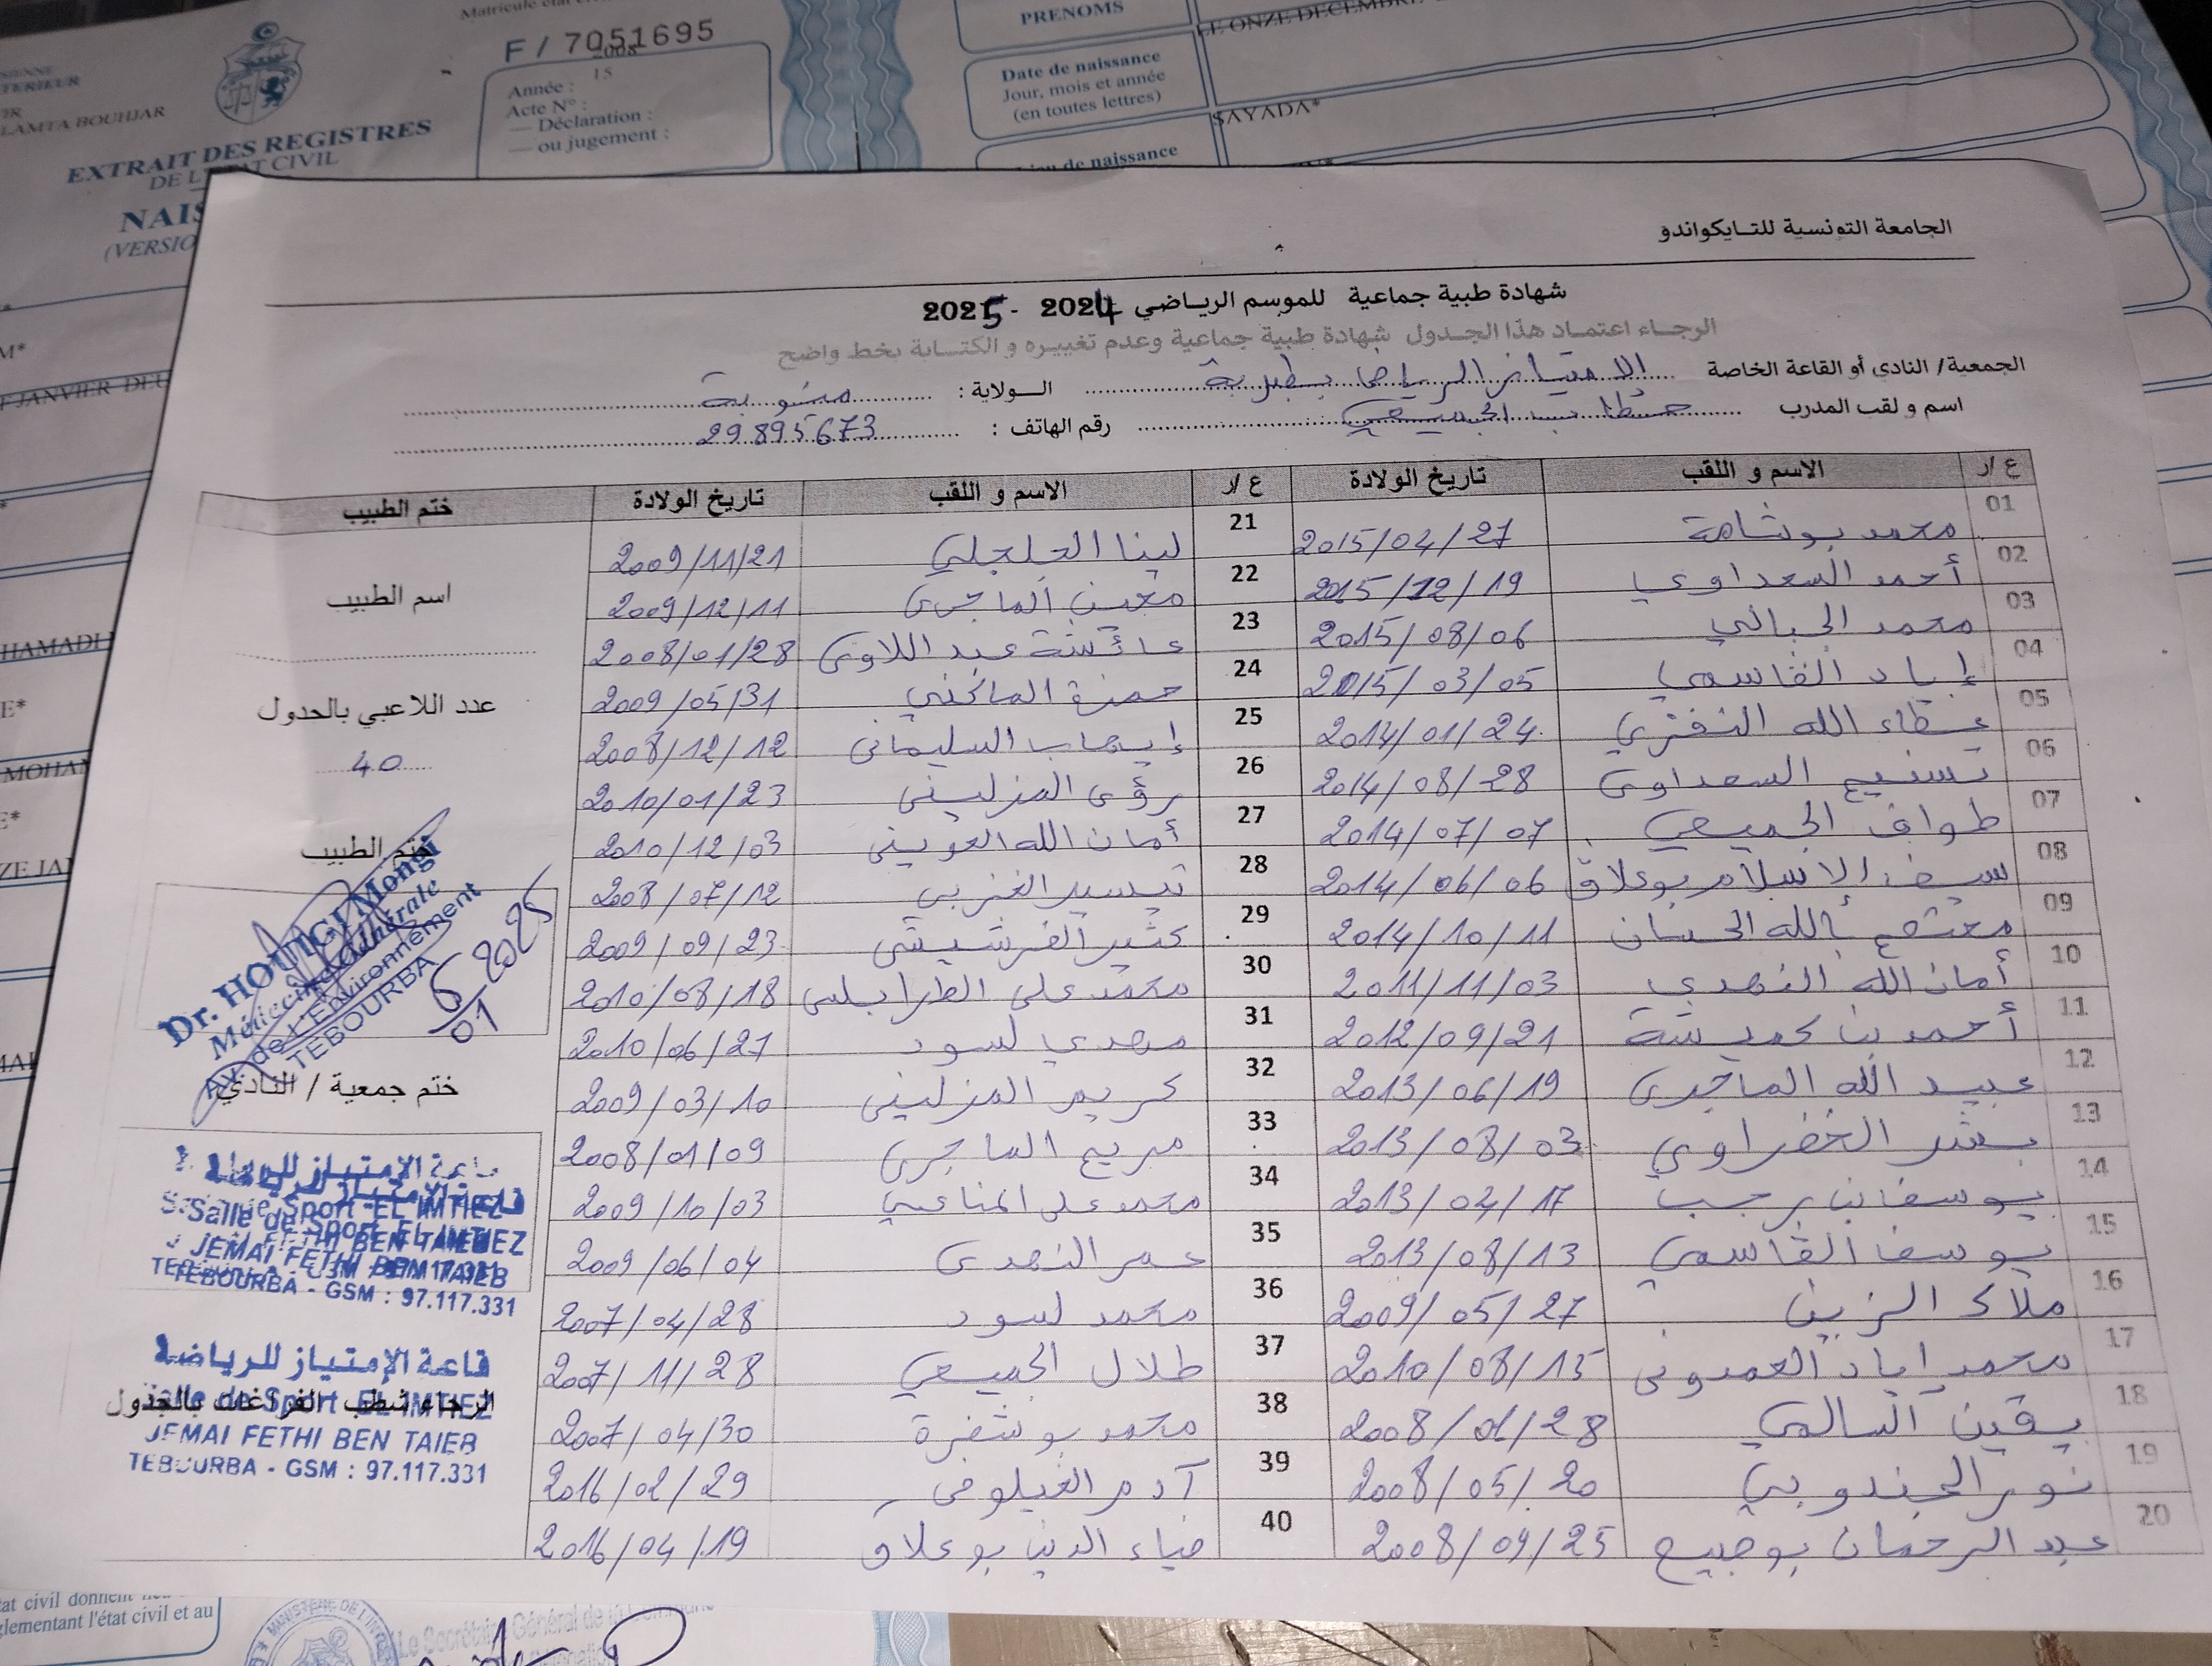 Matricule état
F / 7051695
2008
15
Année :
Acte N° :
— Déclaration :
— ou jugement :
LAMTA BOUHJAR
EXTRAIT DES REGISTRES
DE L'ETAT CIVIL
PRENOMS
LE ONZE DECEMBRE
Date de naissance
Jour, mois et année
(en toutes lettres)
SAYADA*
de naissance
JANVIER
HAMADI
الجامعة التونسية للتايكواندو
شهادة طبية جماعية للموسم الرياضي 2024 - 2025
الرجاء اعتماد هذا الجدول شهادة طبية جماعية وعدم تغييره و الكتابة بخط واضح
الجمعية/ النادي أو القاعة الخاصة الامتياز الرياضي بطبربة الولاية : منوبة
اسم و لقب المدرب خطاب الجميعي رقم الهاتف : 29895673
ع /ر الاسم و اللقب تاريخ الولادة ع /ر الاسم و اللقب تاريخ الولادة ختم الطبيب
01 محمد بوشامة 2015/04/27 21 لينا الجلجلي 2009/11/21
02 أحمد السعداوي 2015/12/19 22 معين الماجري 2009/12/11
03 محمد الجبالي 2015/08/06 23 عائشة عبد اللاوي 2008/01/28
04 إياد القاسمي 2015/03/05 24 حمزة الماكني 2009/05/31
05 عطاء الله النفزي 2014/01/24 25 إيهاب السليماني 2008/12/12
06 تسنيم السعداوي 2014/08/28 26 رؤى المزليني 2010/01/23
07 طواف الجميعي 2014/07/07 27 أمان الله العويني 2010/12/03
08 سيف الإسلام بوعلاق 2014/06/06 28 تيسير الغربي 2008/07/12
09 معتصم بالله الحسان 2014/10/11 29 كثير الفرشيشي 2009/09/23
10 أمان الله النهدي 2011/11/03 30 محمد علي الطرابلسي 2010/08/18
11 أحمد بن حميشة 2012/09/21 31 مهدي لسود 2010/06/27
12 عبيد الله الماجري 2013/06/19 32 كريم المزليني 2009/03/10
13 بشر الخضراوي 2013/08/03 33 مريم الماجري 2008/01/09
14 يوسف بن رجب 2013/04/17 34 محمد علي المناعي 2009/10/03
15 يوسف القاسمي 2013/08/13 35 عمر النهدي 2009/06/04
16 ملاك الزين 2009/05/27 36 محمد لسود 2007/04/28
17 محمد إياد العمدوني 2010/08/15 37 طلال الجميعي 2007/11/28
18 يقين السالمي 2008/01/28 38 محمد بوشفرة 2007/04/30
19 نور الجندوبي 2008/05/20 39 آدم الغيلوفي 2016/02/29
20 عبد الرحمان بوجبيح 2008/09/25 40 ضياء الدين بوعلاق 2016/04/19
اسم الطبيب
عدد اللاعبي بالجدول
40
ختم الطبيب
Dr. HOUIGI Mongi
Médecine Générale
Av. de L'Environnement
TEBOURBA
6/01 2025
ختم جمعية / النادي
قاعة الإمتياز للرياضة
Salle de Sport EL IMTIEZ
JEMAI FETHI BEN TAIEB
TEBOURBA - GSM : 97.117.331
قاعة الإمتياز للرياضة
Salle de Sport EL IMTIEZ
الرجاء شطب الفراغات بالجدول
JEMAI FETHI BEN TAIEB
TEBOURBA - GSM : 97.117.331
état civil et au
Le Secrétaire Général de la Commune